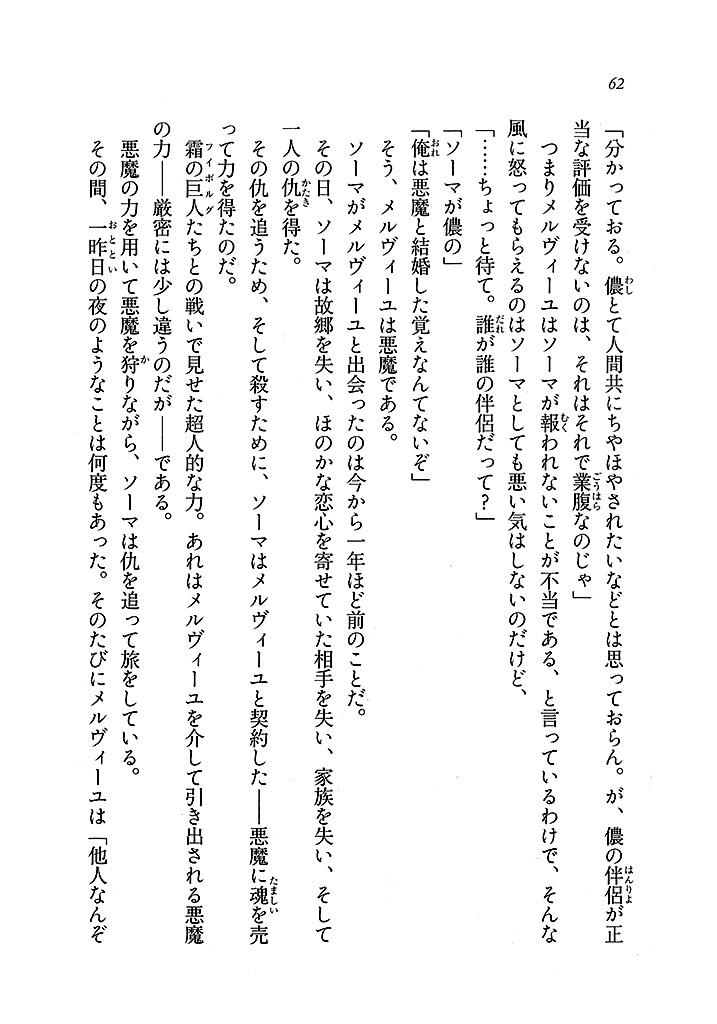 62
「分かっておる。儂とて人間共にちやほやされたいなどとは思っておらん。が、儂の伴侶が正
当な評価を受けないのは、それはそれで業腹なのじゃ」
つまりメルヴィーユはソーマが報われないことが不当である、と言っているわけで、そんな
風に怒ってもらえるのはソーマとしても悪い気はしないのだけど、
「……ちょっと待て。誰が誰の伴侶だって？」
「ソーマが儂の」
「俺は悪魔と結婚した覚えなんてないぞ」
そう、メルヴィーユは悪魔である。
ソーマがメルヴィーユと出会ったのは今から一年ほど前のことだ。
その日、ソーマは故郷を失い、ほのかな恋心を寄せていた相手を失い、家族を失い、そして
一人の仇を得た。
その仇を追うため、そして殺すために、ソーマはメルヴィーユと契約した――悪魔に魂を売
って力を得たのだ。
霜の巨人たちとの戦いで見せた超人的な力。あれはメルヴィーユを介して引き出される悪魔
の力――厳密には少し違うのだが――である。
悪魔の力を用いて悪魔を狩りながら、ソーマは仇を追って旅をしている。
その間、一昨日の夜のようなことは何度もあった。そのたびにメルヴィーユは「他人なんぞ